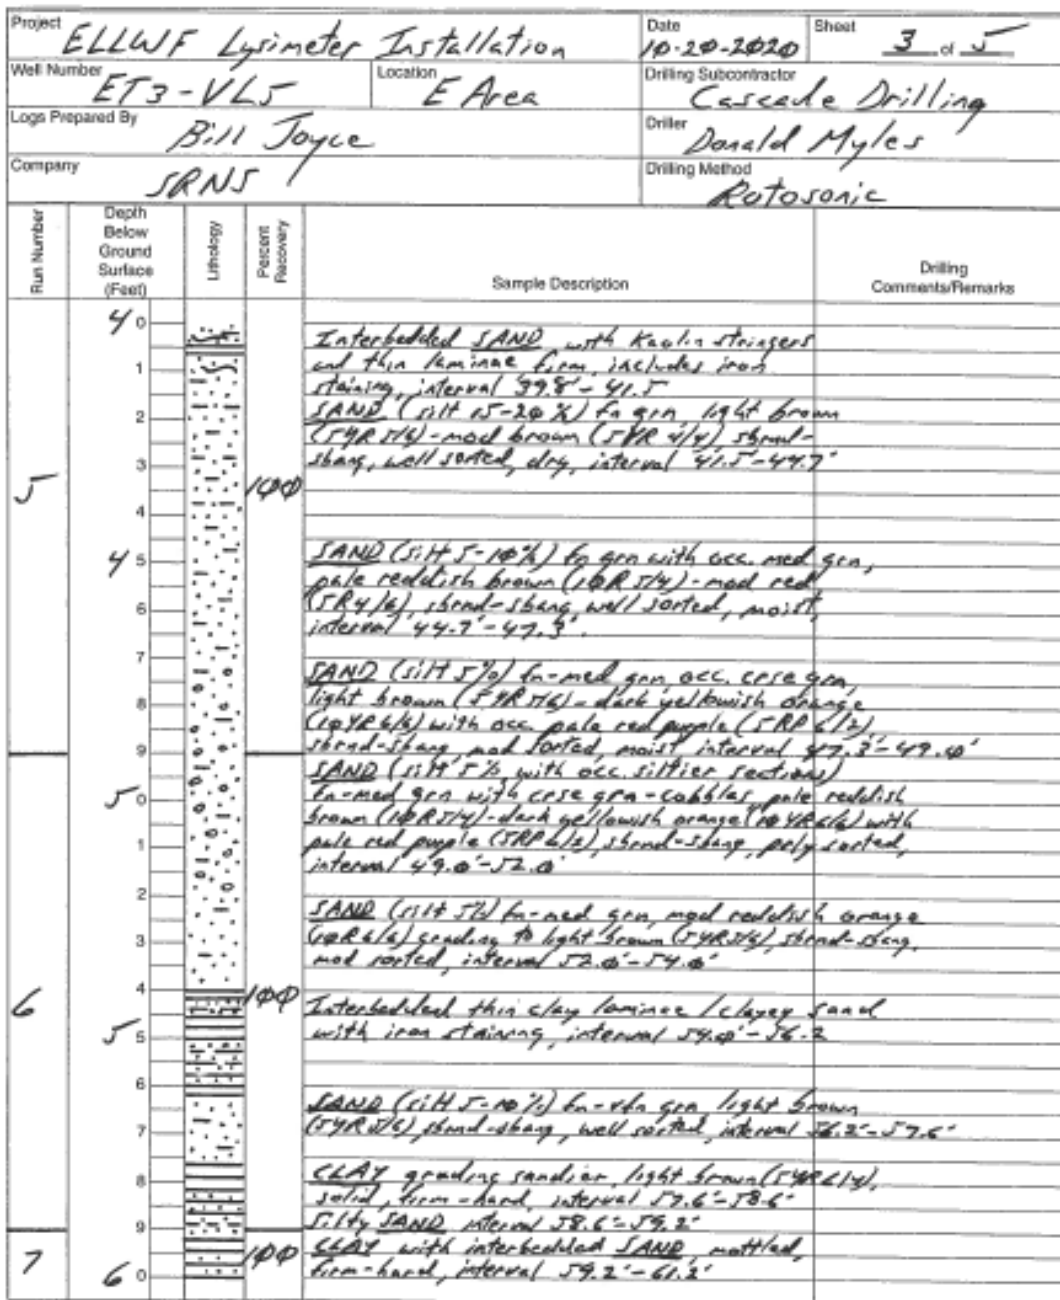 Project ELLWF Lysimeter Installation Date 10-20-2020 Sheet 3 of 5
Well Number ET3-VL5 Location E Area Drilling Subcontractor Cascade Drilling
Logs Prepared By Bill Joyce Driller Donald Myles
Company SRNS Drilling Method Rotosonic
Run Number Depth Below Ground Surface (Feet) Lithology Percent Recovery Sample Description Drilling Comments/Remarks
4 0 Interbedded SAND with Kaolin stringers
1 and thin laminae firm, includes iron
staining, interval 39.8'-41.5
2 SAND (silt 15-20%) fn grn, light brown
(5YR 5/6)-mod brown (5YR 4/4), sbrnd-
3 sbang, well sorted, dry, interval 41.5'-44.7'
5 100
4
4 5 SAND (silt 5-10%) fn grn with occ. med grn,
pale reddish brown (10R 5/4)-mod red
6 (5R4/6), sbrnd-sbang, well sorted, moist,
interval 44.7'-47.3'.
7 SAND (silt 5%) fn-med grn, occ. crse grn,
8 light brown (5YR 5/6)-dark yellowish orange
(10YR6/6) with occ. pale red purple (5RP 6/2),
9 sbrnd-sbang, mod sorted, moist interval 47.3'-49.0'
SAND (silt 5%, with occ. siltier sections)
5 0 fn-med grn with crse grn-cobbles, pale reddish
brown (10R5/4)-dark yellowish orange (10YR6/6) with
1 pale red purple (5RP6/2), sbrnd-sbang, prly sorted,
interval 49.0'-52.0'
2 SAND (silt 5%) fn-med grn, mod reddish orange
(10R6/6) grading to light brown (5YR5/6), sbrnd-sbang,
3 mod sorted, interval 52.0'-54.0'
4
6 100 Interbedded thin clay laminae / clayey sand
5 5 with iron staining, interval 54.0'-56.2
6 SAND (silt 5-10%) fn-vfn grn, light brown
7 (5YR5/6), sbrnd-sbang, well sorted, interval 56.2'-57.6'
8 CLAY grading sandier, light brown (5YR6/4),
solid, firm-hard, interval 57.6'-58.6'
9 Silty SAND interval 58.6'-59.2'
7 100 CLAY with interbedded SAND, mottled,
6 0 firm-hard, interval 59.2'-61.2'